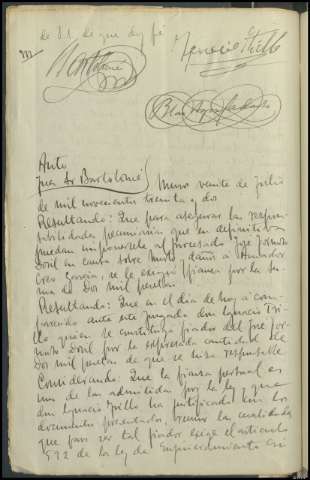 de S.S. de que doy fé
Bartolomé Ignacio Trillo
Auto
Juez Sr Bartolomé Muro veinte de Julio
de mil novecientos treinta y dos
Resultando: Que para asegurar las respon-
sabilidades pecuniarias que en definitiva
puedan imponersele al procesado José
en causa sobre daños a
García, se le exigió fianza por la su-
ma de dos mil pesetas
Resultando: Que en el dia de hoy a com-
parecido ante este Juzgado don Ignacio Tri-
llo quien se constituye fiador del José
por la expresada cantidad de
dos mil pesetas de que se hizo responsable
Considerando: Que la fianza personal es
una de las admitidas por la ley y que
don Ignacio Trillo ha justificado con los
documentos presentados, reunir las cualidades
que para ser tal fiador exige el articulo
592 de la Ley de Enjuiciamiento Cri